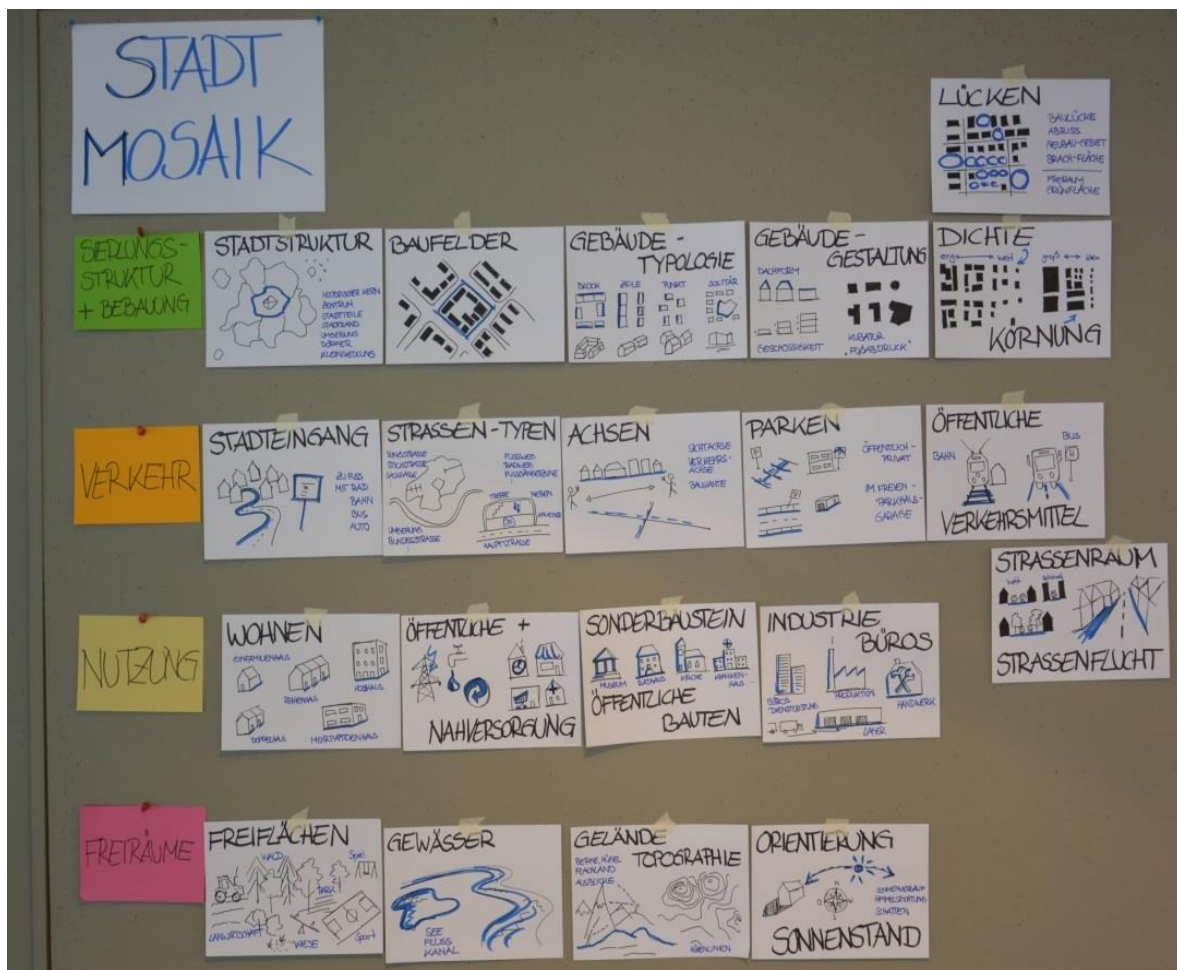 STADT
MOSAIK
LÜCKEN
BAULÜCKE
ABRISS
NEUBAU-GEBIET
BRACH-FLÄCHE
FREIRAUM
GRÜNFLÄCHE
SIEDLUNGS-
STRUKTUR
+ BEBAUUNG
STADTSTRUKTUR
HISTORISCHER KERN
ZENTRUM
STADTTEILE
STADTRAND
UMGEBUNG
DÖRFER
BAUFELDER
GEBÄUDE-
TYPOLOGIE
BLOCK
ZEILE
PUNKT
SOLITÄR
GEBÄUDE-
GESTALTUNG
DACHFORM
GESCHOSSIGKEIT
KUBATUR
„FUßABDRUCK"
DICHTE
eng
weit
groß
klein
KÖRNUNG
VERKEHR
STADTEINGANG
ZU FUß
MIT RAD
BAHN
BUS
AUTO
STRASSEN-TYPEN
RINGSTRASSE
STICHSTRASSE
SACKGASSE
FUSSWEG
RADWEG
FUSSGÄNGERZONE
NEBEN
UMGEHUNG
BUNDESSTRASSE
HAUPTSTRASSE
ACHSEN
SICHTACHSE
VERKEHRS-
ACHSE
BAUKANTE
PARKEN
P
ÖFFENTLICH-
PRIVAT
P
IM FREIEN-
PARKHAUS-
GARAGE
ÖFFENTLICHE
BAHN
BUS
H
VERKEHRSMITTEL
STRASSENRAUM
weit
schmal
STRASSENFLUCHT
NUTZUNG
WOHNEN
EINFAMILIENHAUS
REIHENHAUS
HOCHHAUS
DOPPELHAUS
MEHRFAMILIENHAUS
ÖFFENTLICHE +
NAHVERSORGUNG
SONDERBAUSTEIN
MUSEUM
RATHAUS
KIRCHE
KRANKEN-
HAUS
ÖFFENTLICHE
BAUTEN
INDUSTRIE
BÜROS
BÜROS
DIENSTLEISTUNG
PRODUKTION
HANDWERK
LAGER
FREIRÄUME
FREIFLÄCHEN
WALD
Spiel
PARK
LANDWIRTSCHAFT
WIESE
Sport
GEWÄSSER
SEE
FLUSS
KANAL
GELÄNDE
TOPOGRAPHIE
BERGE, HÜGEL
FLACHLAND
AUSBLICKE
HÖHENLINIEN
ORIENTIERUNG
N
O
W
S
SONNENVERLAUF
HIMMELSRICHTUNG
SCHATTEN
SONNENSTAND